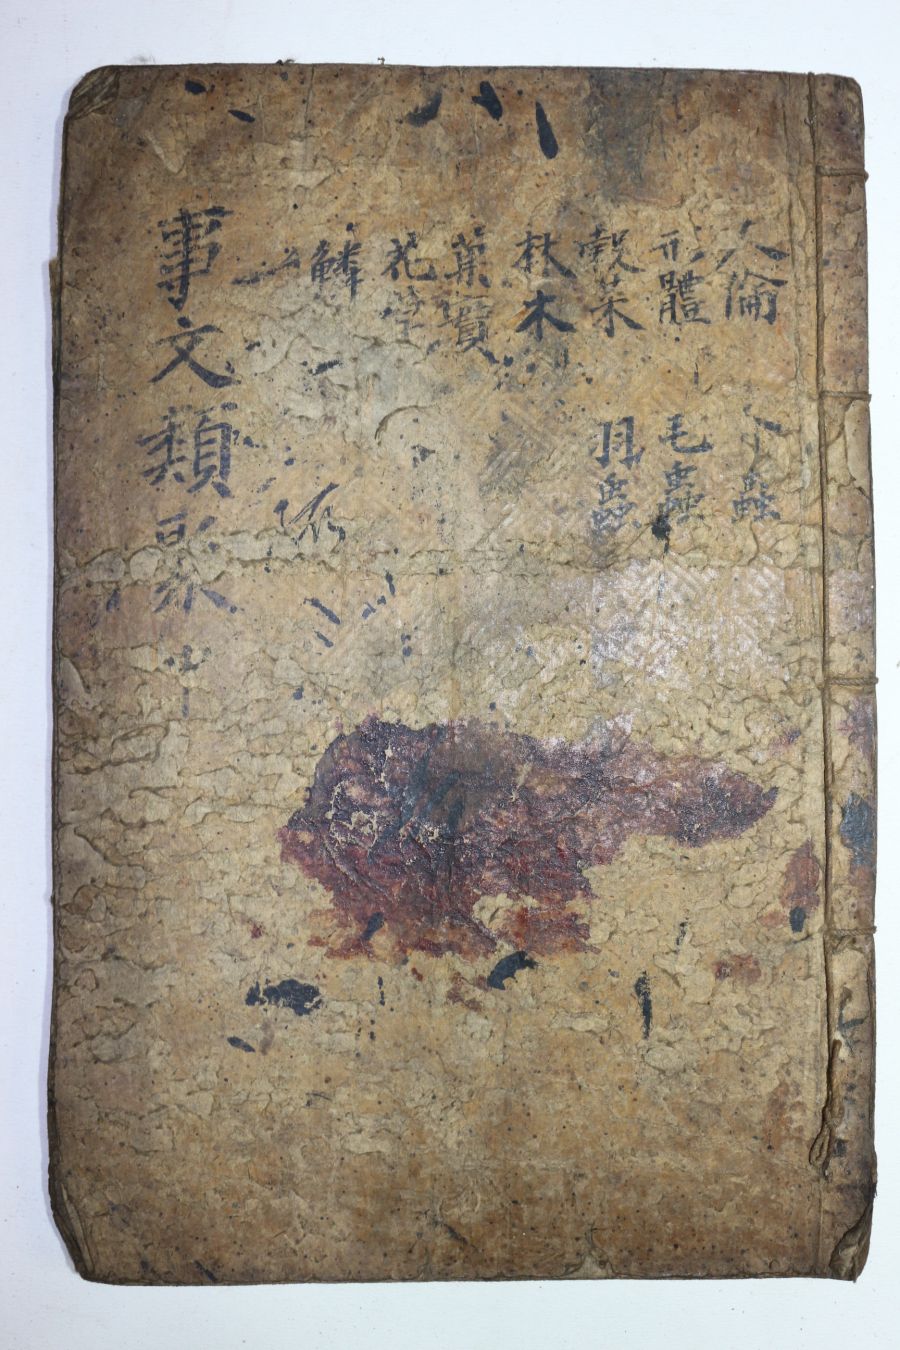 人倫
形體
穀菜
林木
菓實
花草
鱗
小蟲
毛蟲
羽蟲
事文類聚